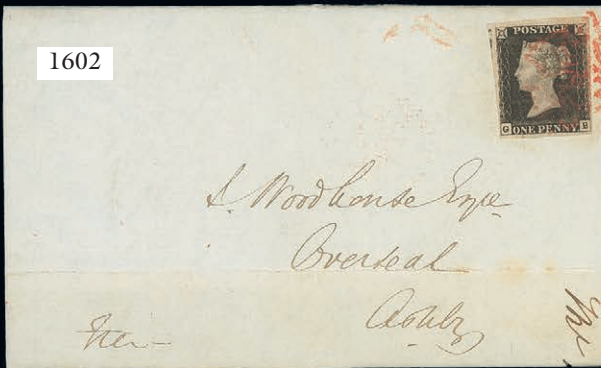 1602
POSTAGE
G ONE PENNY B
J. Woodhouse Esqre
Overseal
Ashby